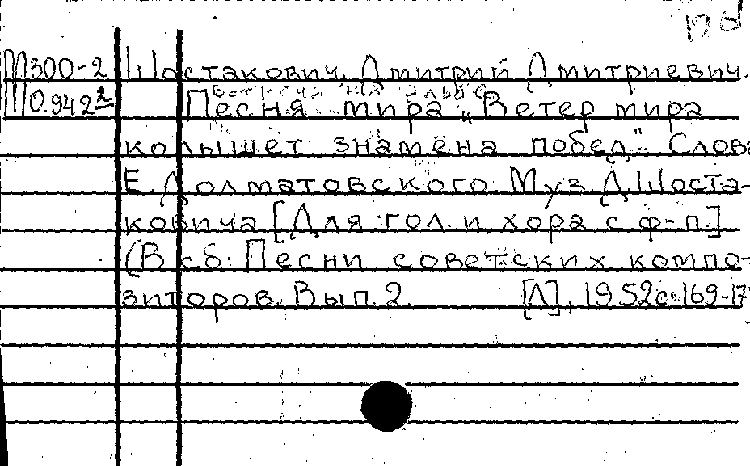 М300-2 Шостакович, Дмитрий Дмитриевич.
М0.942² Песня мира „Ветер мира
колышет знамёна побед". Слова
Е. Долматовского. Муз. Д. Шоста-
ковича [Для гол. и хора с ф-п.]
(В сб: Песни советских компо-
зиторов. Вып. 2. [Л], 1952 с. 169-17